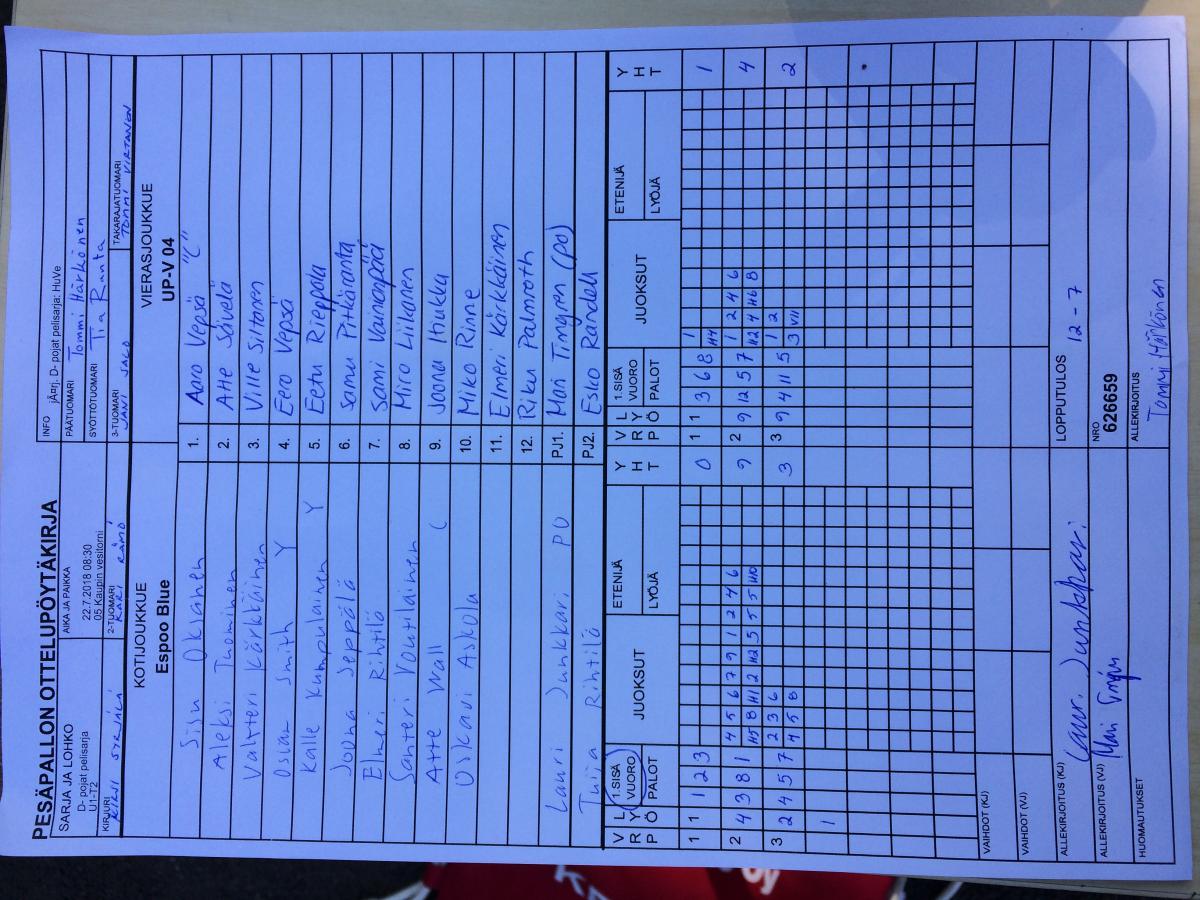 PESÄPALLON OTTELUPÖYTÄKIRJA
SARJA JA LOHKO
D- pojat pelisarja
U1-T2
AIKA JA PAIKKA
22.7.2018 08:30
05 Kaupin vesitorni
INFO jÃ¤rj. D- pojat pelisarja: HuVe
PÄÄTUOMARI Tommi Härkönen
SYÖTTÖTUOMARI Tia Ranta
KIRJURI
KIRSI SYRJÄLÄ
2-TUOMARI
KARI RÄMÖ
3-TUOMARI
JANI JALO
TAKARAJATUOMARI
TOMMI VIRTANEN
KOTIJOUKKUE
Espoo Blue
VIERASJOUKKUE
UP-V 04
Sisu Oksanen 1. Aaro Vepsä "C"
Aleksi Tuominen 2. Atte Sävelä
Valtteri Kärkkäinen 3. Ville Siltanen
Osvan Smith Y 4. Eero Vepsä
Kalle Kumpulainen Y 5. Eetu Rieppola
Joona Seppälä 6. Samu Pitkäranta
Elmeri Rihtilä 7. Sami Vainionpää
Santeri Voutilainen 8. Miro Liikanen
Atte Wall C 9. Joona Hiukka
Oskavi Askola 10. Miko Rinne
11. Elmeri Kärkkäinen
12. Riku Palmroth
Lauri Junkkari PU PJ1. Mari Tingren (po)
Tuija Rihtilä PJ2. Esko Randell
V R P L Y Ö 1.SISÄ VUORO PALOT JUOKSUT ETENIJÄ LYÖJÄ Y H T V R P L Y Ö 1.SISÄ VUORO PALOT JUOKSUT ETENIJÄ LYÖJÄ Y H T
1 1 1 2 3 0 1 1 3 6 8 1 1
H4
2 4 3 8 1 4 5 6 7 9 1 2 4 6 9 2 9 12 5 7 1 2 4 6 4
H5 8 H1 2 H2 5 5 5 H10 H2 4 H6 8
3 2 4 5 7 2 3 6 3 3 9 4 11 5 1 2 2
4 5 8 3 VII
1
VAIHDOT (KJ)
VAIHDOT (VJ)
ALLEKIRJOITUS (KJ) Lauri Junkkari
LOPPUTULOS 12 - 7
ALLEKIRJOITUS (VJ) Mari Tingren
NRO
626659
HUOMAUTUKSET
ALLEKIRJOITUS
Tommi Härkönen